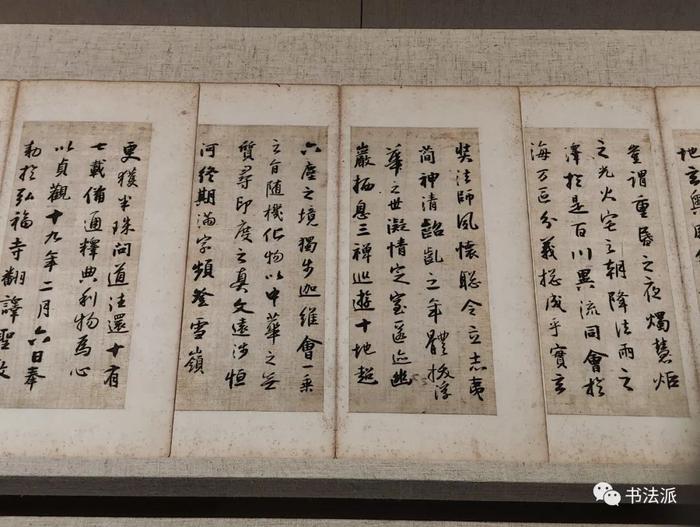 地玄奧
豈謂重昏之夜燭慧炬
之光火宅之朝降法雨之
澤於是百川異流同會於
海万區分義揔成乎實玄
奘法師夙懷聡令立志夷
简神清齠齔之年體拔浮
華之世凝情定室匿迹幽
巖栖息三禅巡遊十地超
六塵之境獨步迦維會一乘
之旨随機化物以中華之无
質尋印度之真文遠涉恒
河終期滿字頻登雪嶺
更獲半珠問道往還十有
七載備通釋典利物為心
以貞觀十九年二月六日奉
勅於弘福寺翻譯聖教
书法派